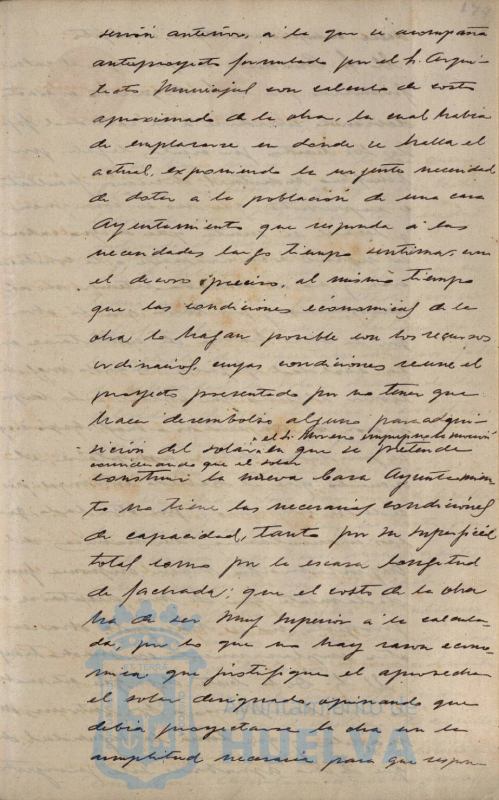 sesión anterior, a la que se acompaña
anteproyecto formulado por el Sr. Arqui-
tecto Municipal con calculo de costo
aproximado de la obra, la cual habia
de emplazarse en donde se halla el
actual, exponiendo la urgente necesidad
de dotar a la población de una casa
Ayuntamiento que responda á las
necesidades largo tiempo sentidas, con
el decoro preciso, al mismo tiempo
que las condiciones económicas de la
obra la hagan posible con los recursos
ordinarios, cuyas condiciones reune el
proyecto presentado por no tener que
hacer desembolso alguno para adqui-
sición del solar,
el Sr. Moreno impugna la moción
considerando que el solar
en que se pretende
construir la nueva Casa Ayuntamien-
to no tiene las necesarias condiciones
de capacidad, tanto por su superficie
total como por la escasa longitud
de fachada; que el costo de la obra
ha de ser muy superior a la calcula-
da, por lo que no hay razon econo-
mica que justifique el aprovechar
el solar designado, opinando que
debia proyectarse la obra con la
amplitud necesaria para que respon-
Ayuntamiento de
HUELVA